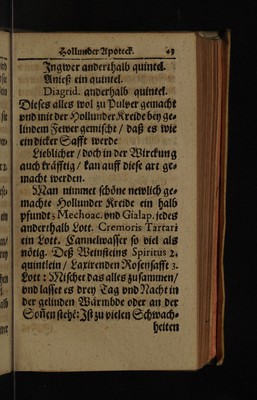 Hollunder Apoteck. 49
Ingwer anderthalb quintel.
Anieß ein quintel.
Diagrid. anderhalb quintel.
Dieses alles wol zu Pulver gemacht
vnd mit der Hollunder Kreide bey ge-
lindem Fewer gemischt / daß es wie
ein dicker Safft werde
Lieblicher / doch in der Wirckung
auch kräfftig / kan auff diese art ge-
macht werden.
Man nimmet schöne newlich ge-
machte Hollunder Kreide ein halb
pfundt; Mechoac. vnd Gialap. jedes
anderthalb Lott. Cremoris Tartari
ein Lott. Cannelwasser so viel als
nötig. Deß Weinsteins Spiritus 2.
quintlein / Laxirenden Rosensafft 3.
Lott: Mischet das alles zusammen /
vnd lasset es drey Tag vnd Nacht in
der gelinden Wärmbde oder an der
Soñen stehẽ: Ist zu vielen Schwach-
heiten